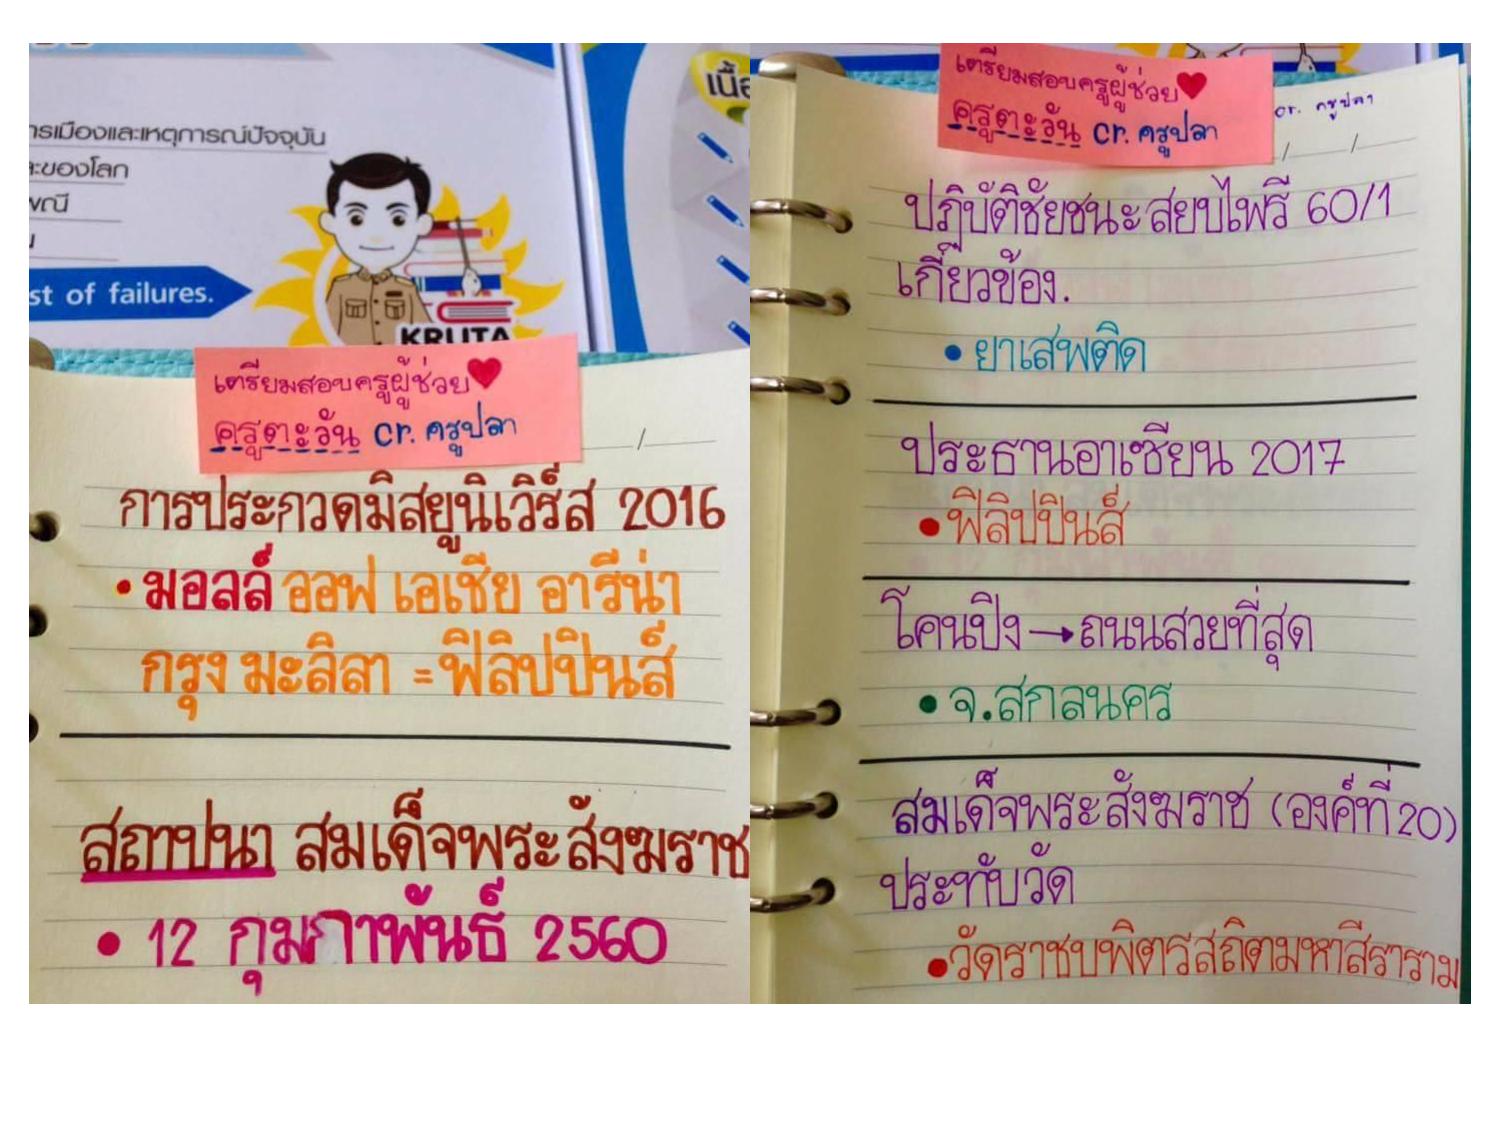 ารเมืองและเหตุการณ์ปัจจุบัน
ะของโลก
พณี
st of failures.
KRUTA
เตรียมสอบครูผู้ช่วย
ครูตะวัน cr. ครูปลา
การประกวดมิสยูนิเวิร์ส 2016
• มอลล์ ออฟ เอเชีย อารีน่า
กรุง มะลิลา = ฟิลิปปินส์
สถาปนา สมเด็จพระสังฆราช
• 12 กุมภาพันธ์ 2560
เนื้อ
เตรียมสอบครูผู้ช่วย
ครูตะวัน cr. ครูปลา
cr. ครูปลา
ปฏิบัติชัยชนะสยบไพรี 60/1
เกี่ยวข้อง.
• ยาเสพติด
ประธานอาเซียน 2017
• ฟิลิปปินส์
โคนปิง → ถนนสวยที่สุด
• จ.สกลนคร
สมเด็จพระสังฆราช (องค์ที่ 20)
ประทับวัด
• วัดราชบพิตรสถิตมหาสีราราม